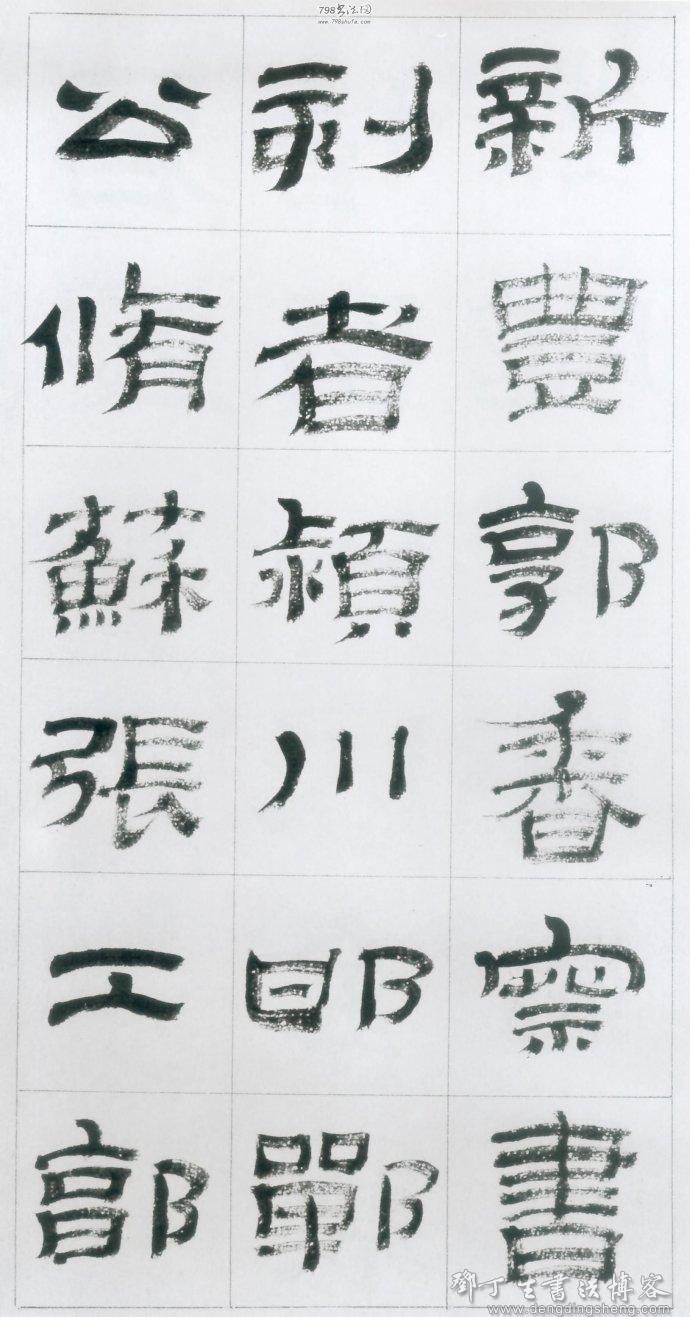 798书法网
www.798shufa.com
新豐郭香察書
刻者潁川邯鄲
公脩蘇張工郭
鄧丁生書法博客
www.dengdingsheng.com